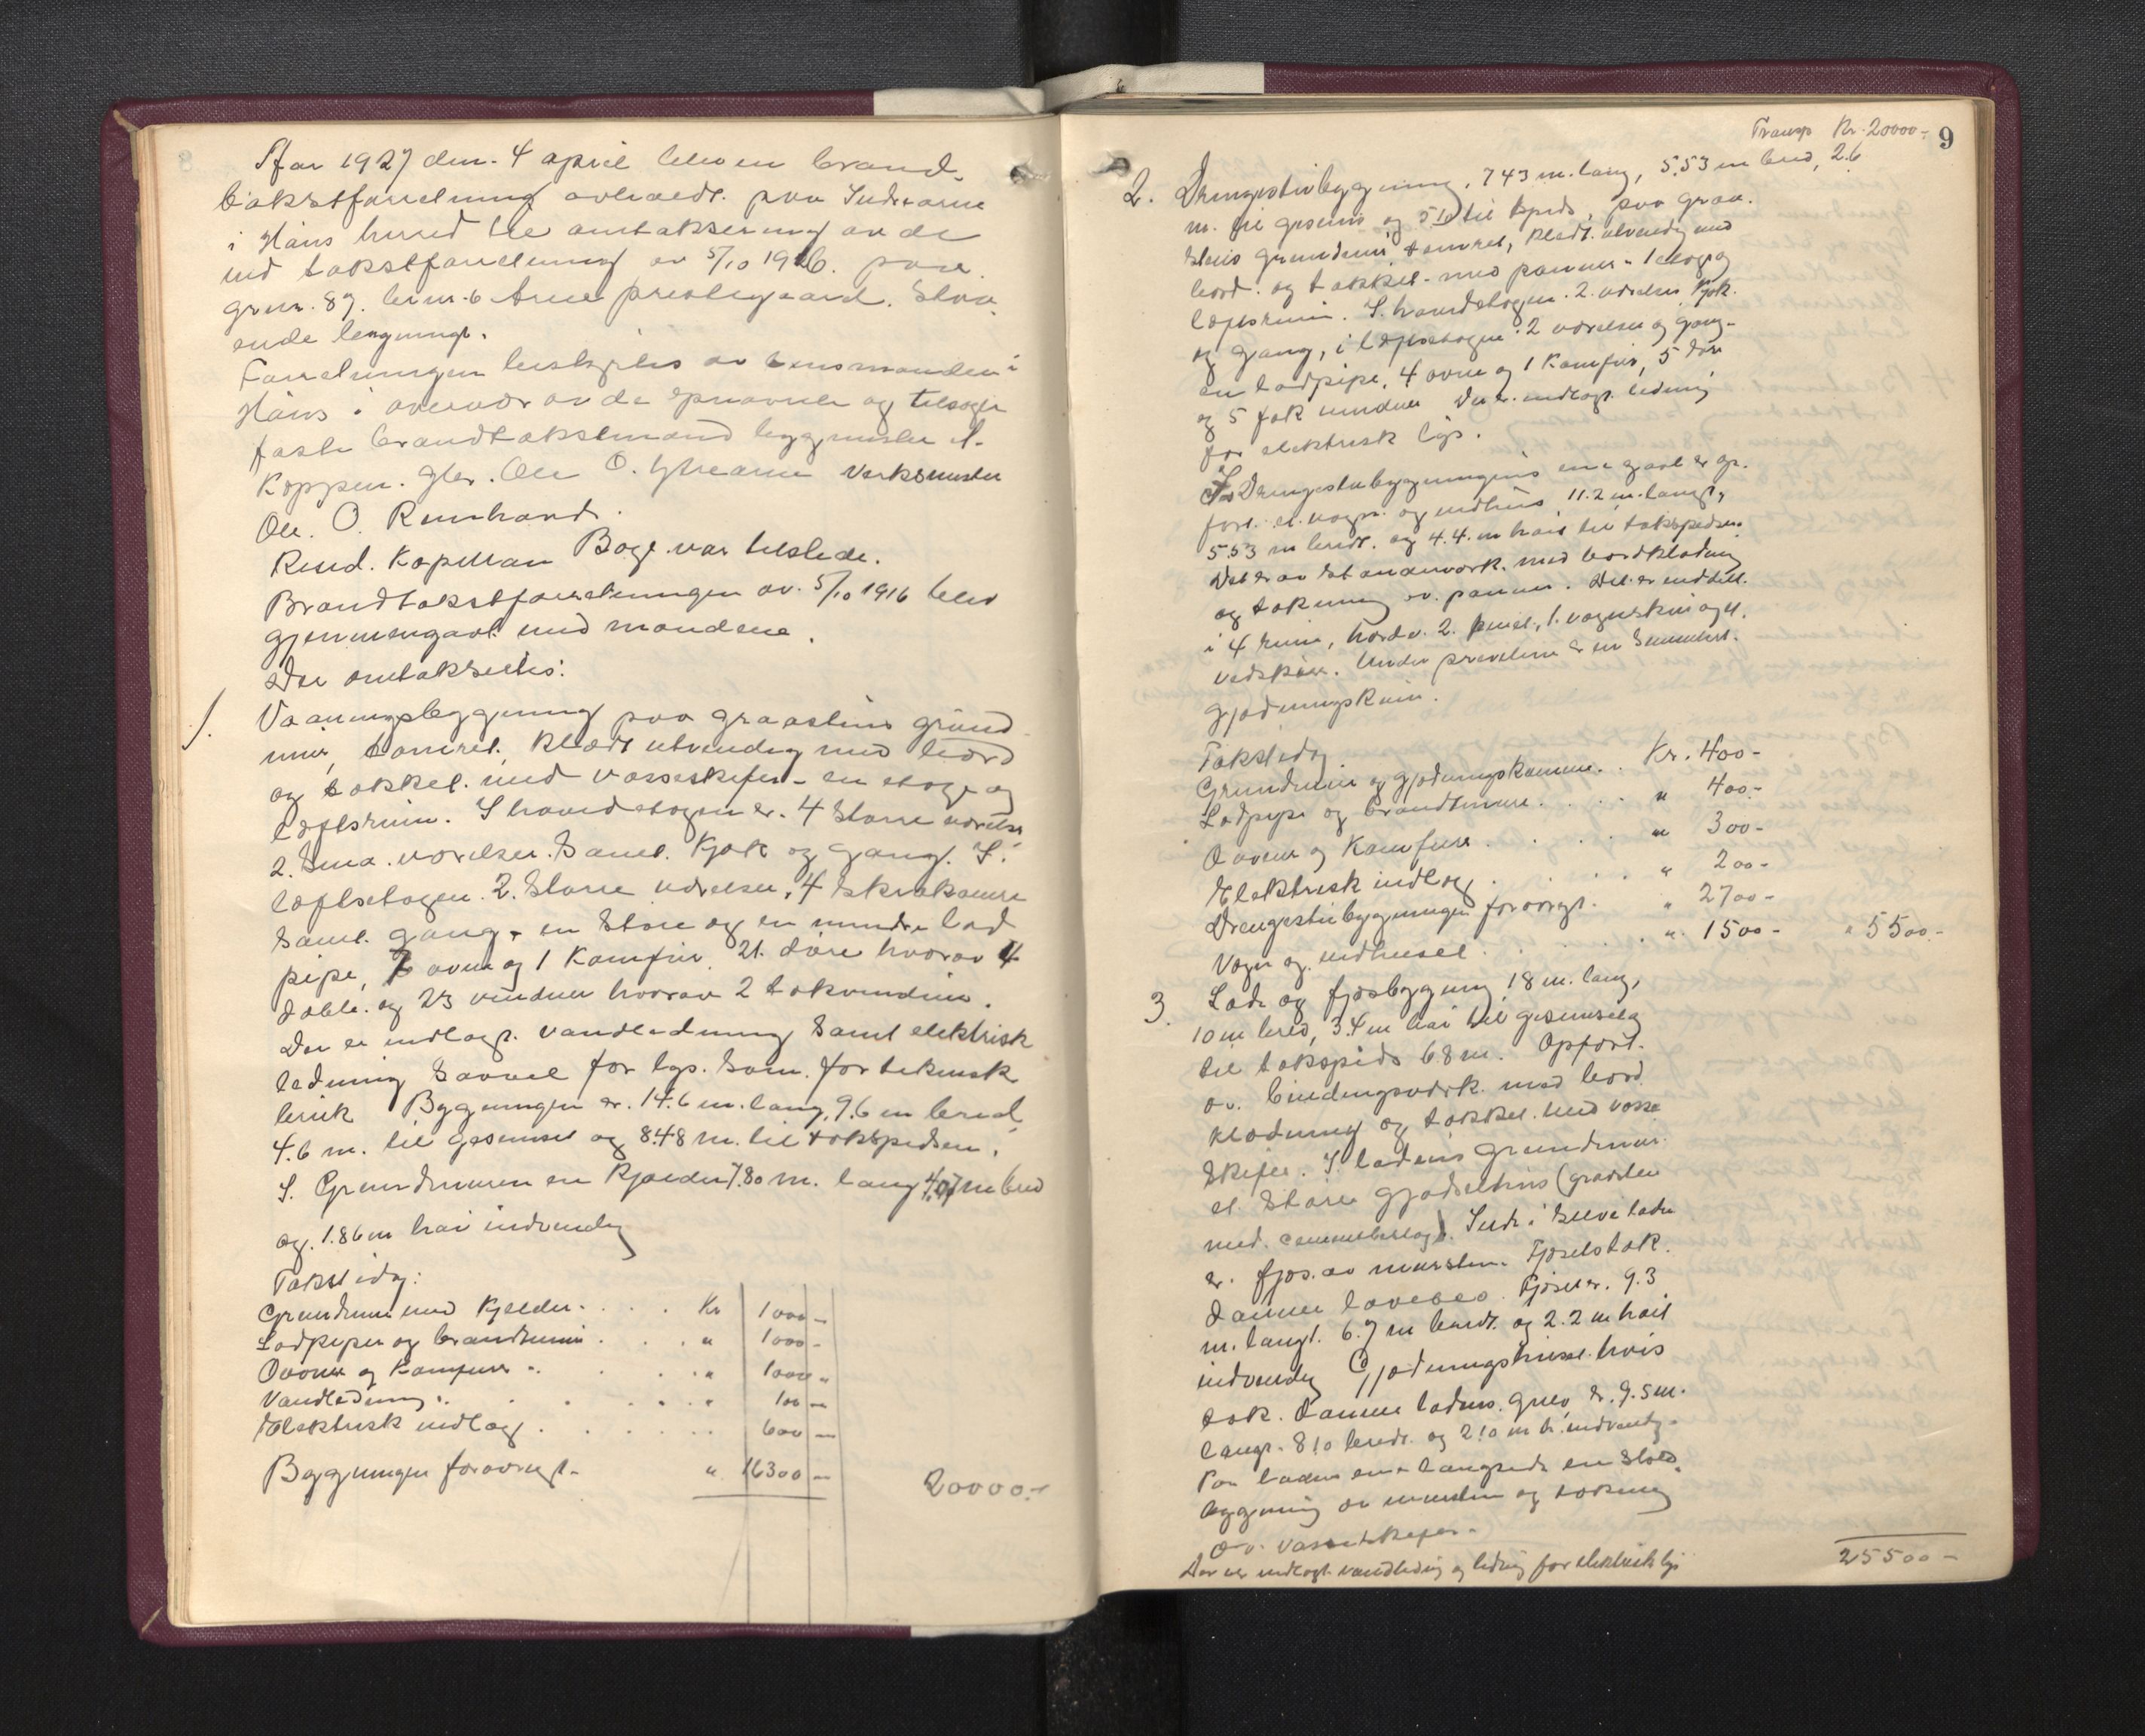 Aar 1927 den 4 april blev en brand-
takstforretning avholdt paa Indre arne
i Haus herred til omtaksering av de
ved takstforretning av 5/10 1916 paa
grnr. 87. brnr. 6 Arne prestegaard. Staa-
ende bygninger.
Forretningen bestyrtes av lensmanden i
Haus i overvær av de opnævnte og tilsagte
faste brandtakstmænd bygmester A.
Koppen. Gbr. Ole O. Ytrearne Verksmester
Ole. O. Runhovd.
Resid. Kapellan Boge var tilstede.
Brandtakstforretningen av 5/10 1916 blev
gjennemgaat med mændene.
Der omtaksertes:
1. Vaaningsbygning paa graastens grund
mur, tømret, klædt utvendig med bord
og tækket med vosseskifer - en etage og
loftsrum. I hovedetagen er 4 større værelser
2. Smaa værelser samt kjøk og gang. I
loftsetagen 2. Større værelser, 4 skraakamre
samt gang. en større og en mindre lod
pipe, 7 ovne og 1 Komfur 21. døre hvorav 4
doble og 23 vinduer hvorav 2 takvinduer.
Der er indlagt vandledning samt elektrisk
ledning saavel for lys. som for teknisk
bruk Bygningen er 14.6 m. lang, 9.6 m bred
4.6 m. til gesimset og 8.48 m. til takspidsen.
I. Grundmuren en kjælder 7.80 m. lang 4.07 m bred
og 1.86 m høi indvendig
Takst idag:
Grundmur med kjælder. . . . Kr 1000 -
Lodpiper og brandmur . . . " 1000 -
Ovner og Komfur . . . . " 1000 -
Vandledning . . . . . " 100 -
Elektrisk indlæg . . . . . 600 -
Bygningen forøvrigt - " 16300 - 20000.-
Transp Kr. 20000.- 9
2. Drengestubygning, 7.43 m. lang, 5.53 m bred, 2.6
m. til gesims og 5.10 til spids, paa graa-
stens grundmur tømret, klædt utvendig med
bord og tækket med panner - 1 etage og
loftsrum. I hovedetagen 2. værelser kjøk.
og gang, i loftsetagen 2 værelser og gang -
en lodpipe, 4 ovne og 1 Komfur, 5 døre
og 5 fok vinduer Der er indlagt ledning
for elektrisk lys.
Drengestubygningens ene gavl er op-
ført et vogn og vedhus 11.2 m. langt,
5.53 m bredt og 4.4 m høit til takspidsen.
Det er av standerverk med bordklædning
og tækning av panner. Det er inddelt
i 4 rum, hvorav 2. priveter, 1. vognskur og 1.
vedskur. Under priveterne er en Sementert
gjødningskum.
Takst idag
Grundmur og gjødningskumme. . Kr. 400 -
Lodpipe og brandmur. . . . " 400.-
Ovner og Komfur . . . . " 300 -
Elektrisk indlæg . . . . " 200 -
Drengestubygningen forøvrigt . " 2700 -
Vogn og vedhuset . . . . . " 1500 - " 5500.-
3. Lade og fjøsbygning 18 m. lang,
10 m bred, 3.4 m høi til gesimset og
til takspids 6.8 m. Opført
av bindingsverk med bord
klædning og tækket med vosse
skifer. I ladens grundmur
et større gjødselhus (graasten
med cementbeslag). Inde i selve laden
er fjøs av mursten. Fjøsets tak
danner lavebro. Fjøset er 9.3
m. langt. 6.7 m bredt og 2.2 m høit
indvendig Gjødningshuset hvis
tak danner ladens gulv er 9.5 m.
langt. 8.10 bredt og 2.10 m h. indvendig
Paa ladens ene langside en stald
bygning av mursten og tækning
av vosseskifer.
Der er indlagt vandledning og ledning for elektrisk lys
25500 -